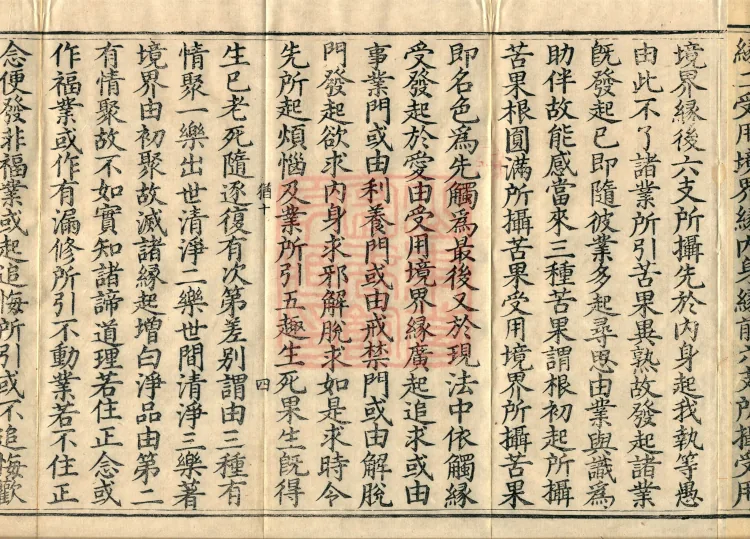 緣二受用境界緣内身緣前六支所攝受用
境界緣後六支所攝先於内身起我執等愚
由此不了諸業所引苦果異熟故發起諸業
旣發起已即隨彼業多起尋思由業與識爲
助伴故能感當來三種苦果謂根初起所攝
苦果根圓滿所攝苦果受用境界所攝苦果
即名色爲先觸爲最後又於現法中依觸緣
受發起於愛由受用境界緣廣起追求或由
事業門或由利養門或由戒禁門或由解脫
門發起欲求内身求邪解脫求如是求時令
先所起煩惱及業所引五趣生死果生旣得
猶十 四
生已老死隨逐復有次第差別謂由三種有
情聚一樂出世清淨二樂世間清淨三樂著
境界由初聚故滅諸緣起增白淨品由第二
有情聚故不如實知諸諦道理若住正念或
作福業或作有漏修所引不動業若不住正
念便發非福業或起追悔所引或不追悔歡